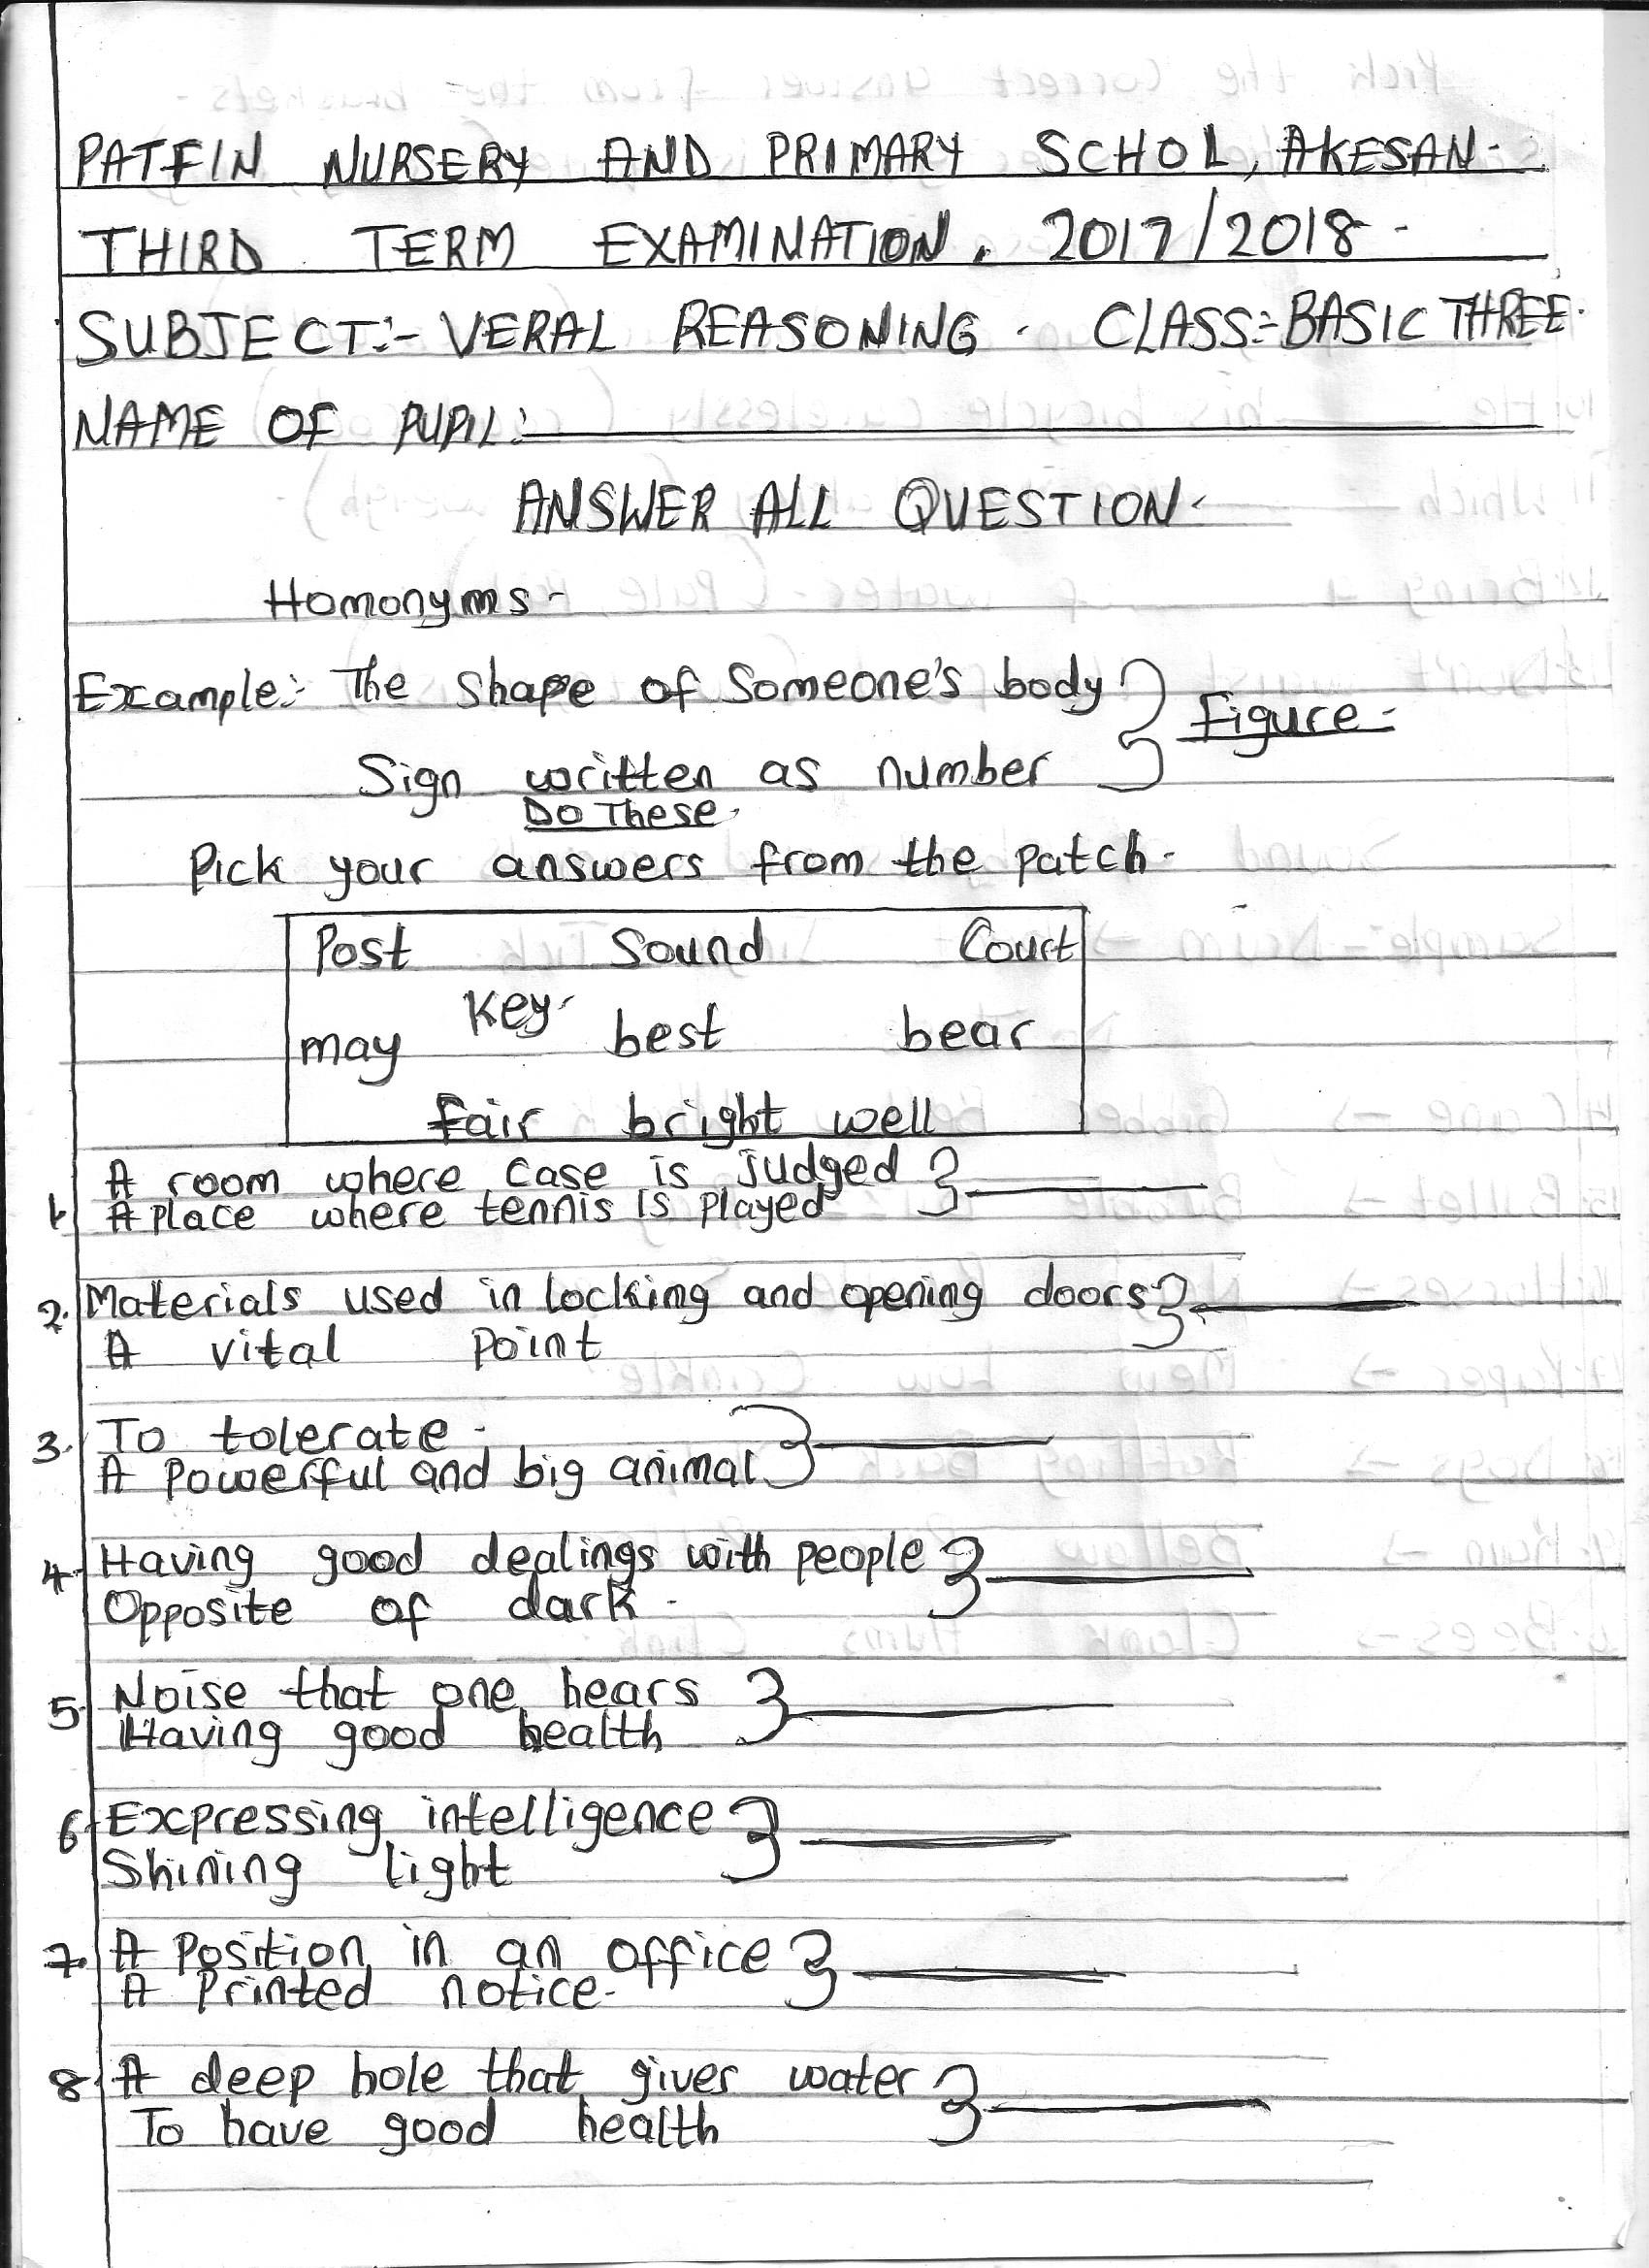 PATFIN NURSERY AND PRIMARY SCHOL, AKESAN.
THIRD TERM EXAMINATION. 2017/2018.
SUBJECT:- VERAL REASONING. CLASS:- BASIC THREE.
NAME OF PUPIL:
ANSWER ALL QUESTION.
Homonyms-
Example:- The shape of Someone's body
Figure-
Sign written as number
Do These.
Pick your answers from the patch.
Post Sound Court
Key.
may best bear
Fair bright well
1. A room where case is judged
A place where tennis is played
2. Materials used in locking and opening doors
A vital point
3. To tolerate.
A Powerful and big animal.
4. Having good dealings with people
Opposite of dark.
5. Noise that one hears
Having good health
6. Expressing intelligence
Shining light
7. A Position in an office
A Printed notice.
8. A deep hole that gives water
To have good health